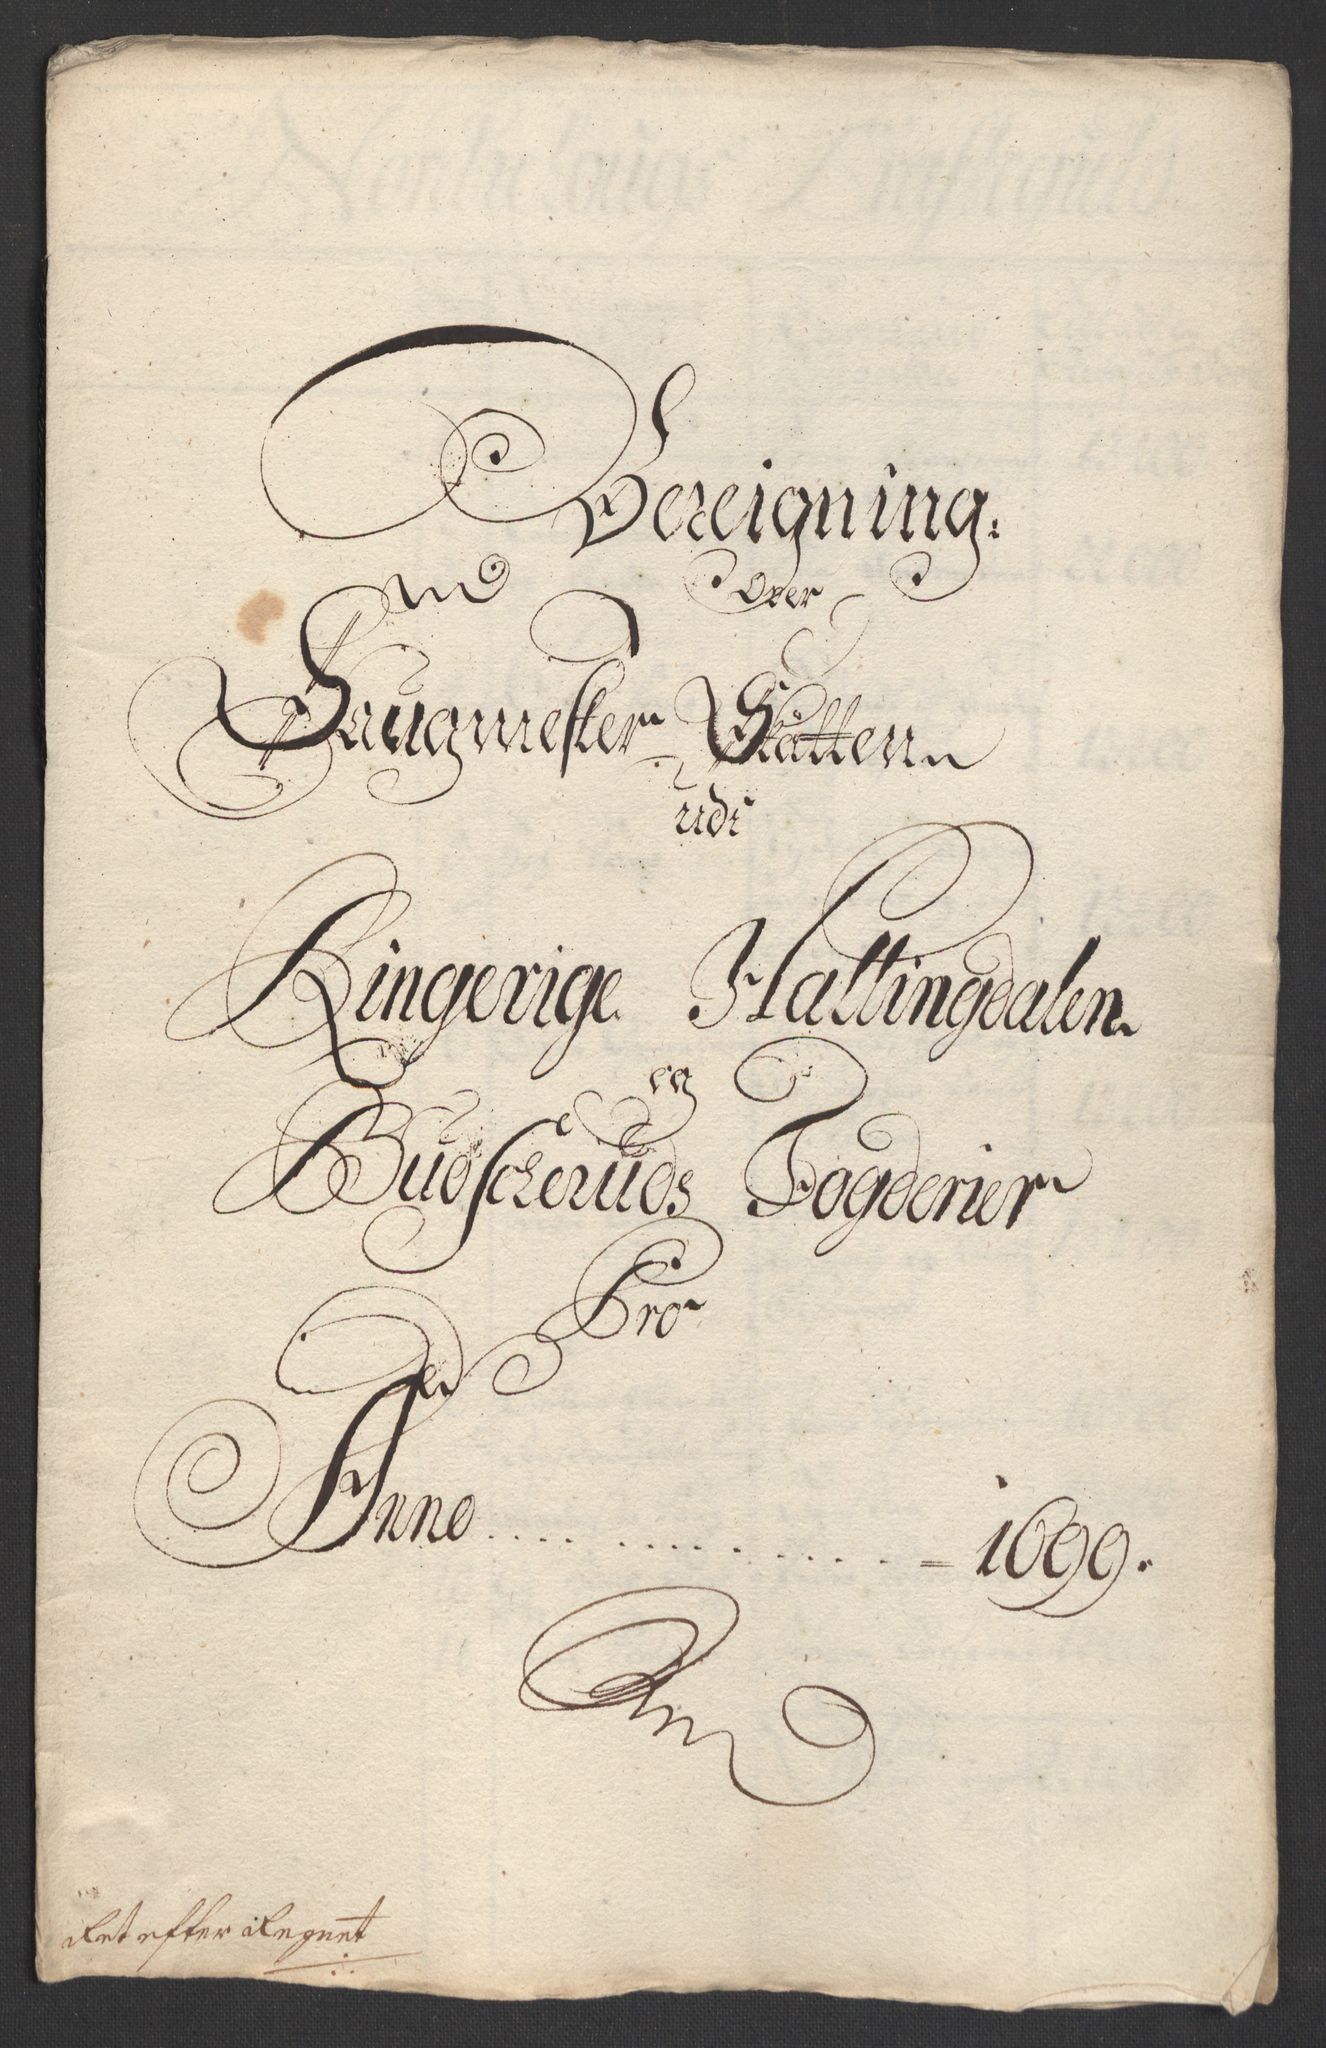 Bereigning.
over
Saugmester Skatten
udi
Ringerige Hallingdalen
og
Budscheruds Fogderier
Pro
Anno ............ = 1699.
Ret efter Regnet